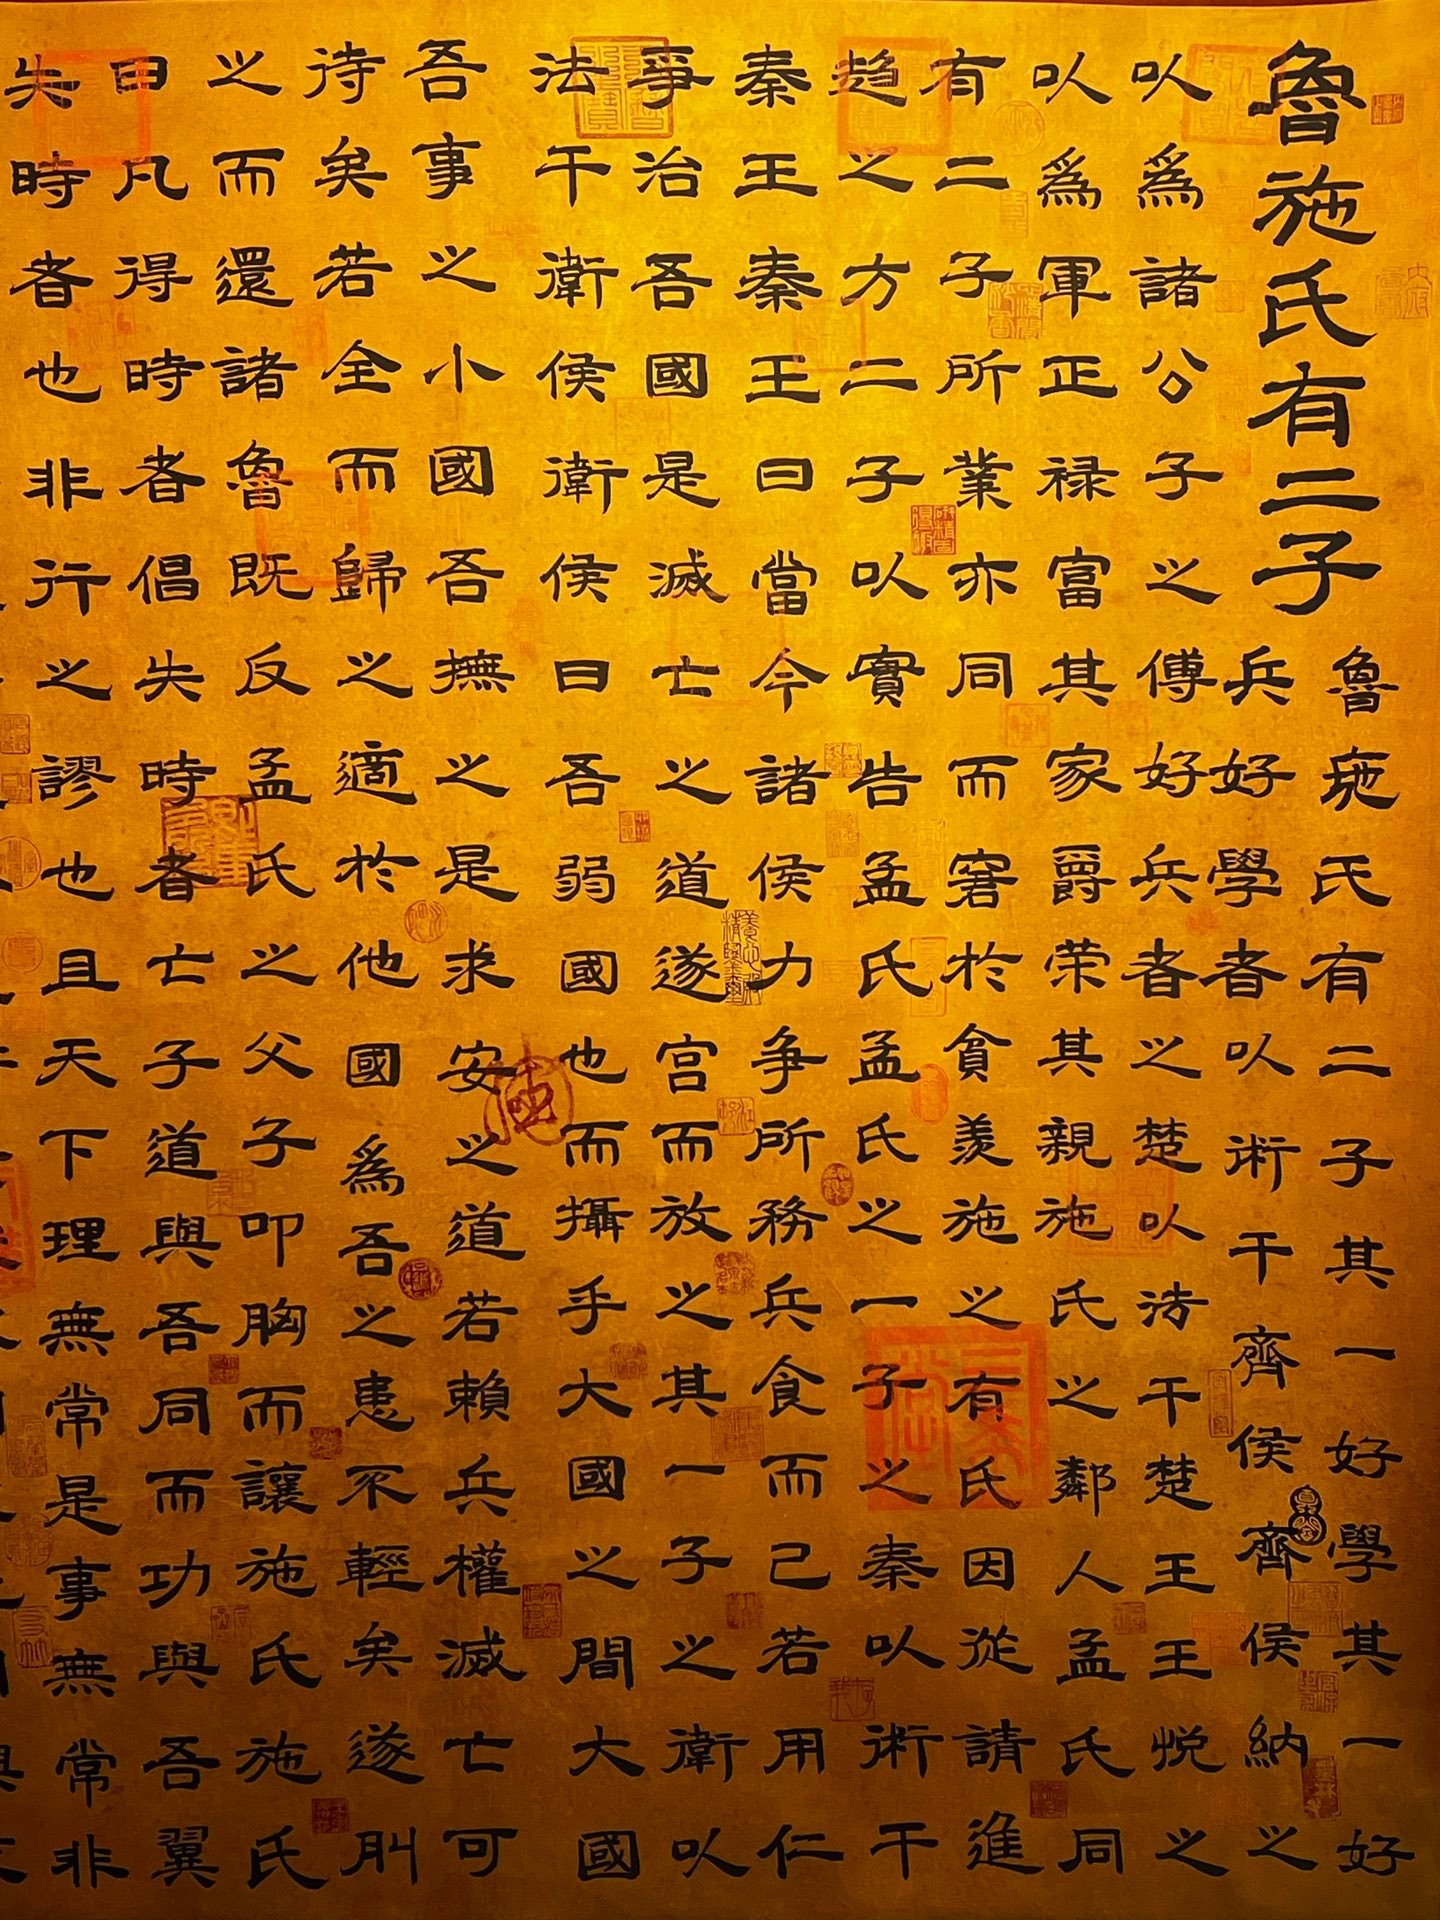 魯施氏有二子
魯施氏有二子其一好學其一好
兵好學者以術干齊侯齊侯納之
以爲諸公子之傅好兵者之楚以法干楚王王悦之
以爲軍正禄富其家爵荣其親施氏之鄰人孟氏同
有二子所業亦同而窘於貧羨施之有氏因從請進
趨之方二子以實告孟氏孟氏之一子之秦以術干
秦王秦王曰當今諸侯力争所務兵食而已若用仁
爭治吾國是滅亡之道遂宫而放之其一子之衛以
法干衛侯衛侯曰吾弱國也而攝乎大國之間大國
吾事之小國吾撫之是求安之道若賴兵權滅亡可
待矣若全而歸之適於他國爲吾之患不輕矣遂刖
之而還諸魯既反孟氏之父子叩胸而讓施氏施氏
曰凡得時者倡失時者亡子道與吾同而功與吾翼
失時者也非行之謬也且天下理無常是事無常非